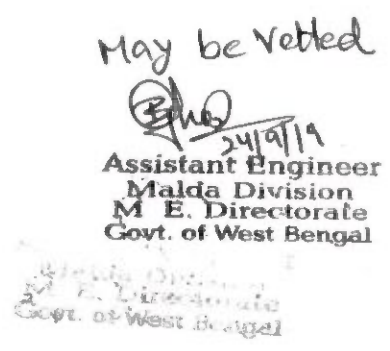 May be Vetted
24/9/19
Assistant Engineer
Malda Division
M E. Directorate
Govt. of West Bengal
E. Directorate
Govt. of West Bengal